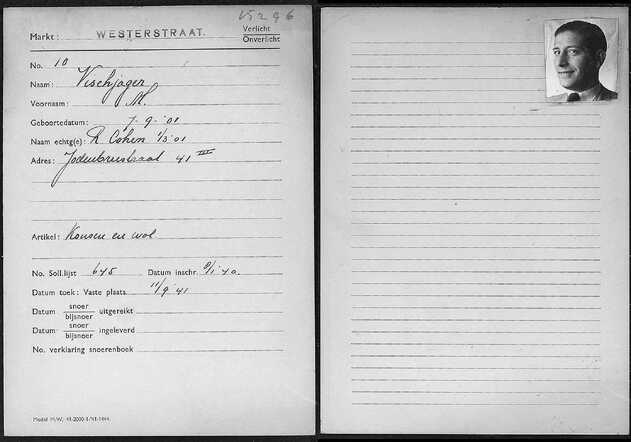 V5296
Markt: WESTERSTRAAT. Verlicht
Onverlicht
No. 10
Naam: Vischjager
Voornaam: M.
Geboortedatum: 7-9-'01
Naam echtg(e): R. Cohen 1/3 '01
Adres: Jodenbreestraat 41 III
Artikel: Kousen en wol
No. Soll.lijst 645 Datum inschr. 9/1 '40.
Datum toek: Vaste plaats 11/9 '41
Datum snoer
bijsnoer uitgereikt
Datum snoer
bijsnoer ingeleverd
No. verklaring snoerenboek
Model M/W.